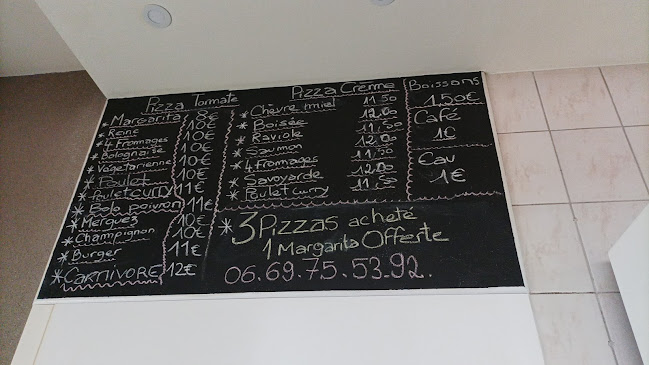 Pizza Tormate
*Margarita 8€
*Reine 10€
*4 Fromages 10€
*Bolognaise 10€
*Végétarienne 10€
*Poulet 10€
*Poulet curry 11€
*Bolo poivron 11€
*Merguez 10€
*Champignon 10€
*Burger 11€
*CARNIVORE 12€
Pizza Crème
*Chèvre miel 11.50
*Boisée 12.00
*Raviole 11.50
*Saumon 12.00
*4 fromages 11.50
*Savoyarde 12.00
*Poulet curry 11.50
Boissons
1.50€
Café
1€
Eau
1€
*3 Pizzas acheté
1 Margarita Offerte
06.69.75.53.92.